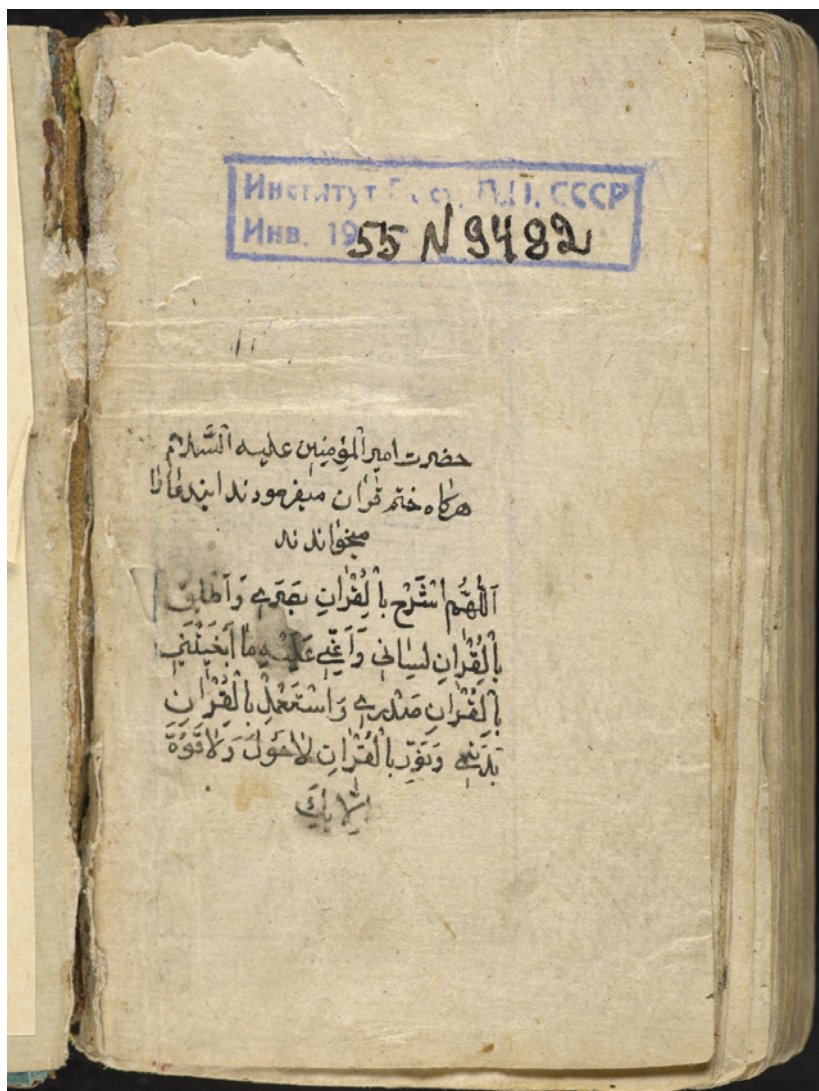 Институт СССР
Инв. 1955 N 9482
حضرت امیر الْمؤمِنِین علیه السَّلام
هرکاه ختم قران میفرمودند ایندعا را
میخواندند
اَللّٰهُمَّ اشْرَح بِالْقُرْاٰنِ وَ
بِالْقُرْاٰنِ لِسٰانی وَاَعِنّی عَلَیْهِ مٰا اَبْقَیْتَنی
بِالْقُرْاٰنِ صَدْری وَاسْتَعْمِلْ بِالْقُرْاٰنِ
بَدَنی وَنَوِّر بِالْقُرْاٰنِ لاٰحَوْلَ وَلاٰ قُوَّةَ
اِلّٰا بِكَ